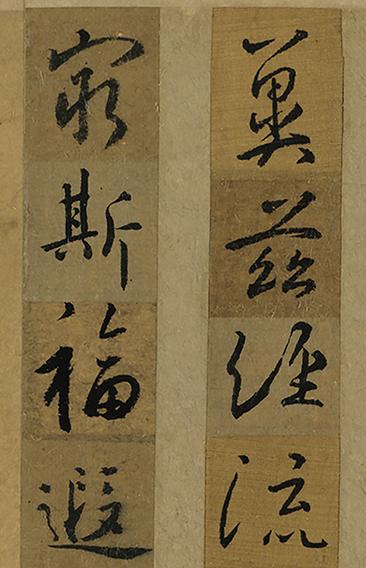 冀茲經流
窮斯福遐